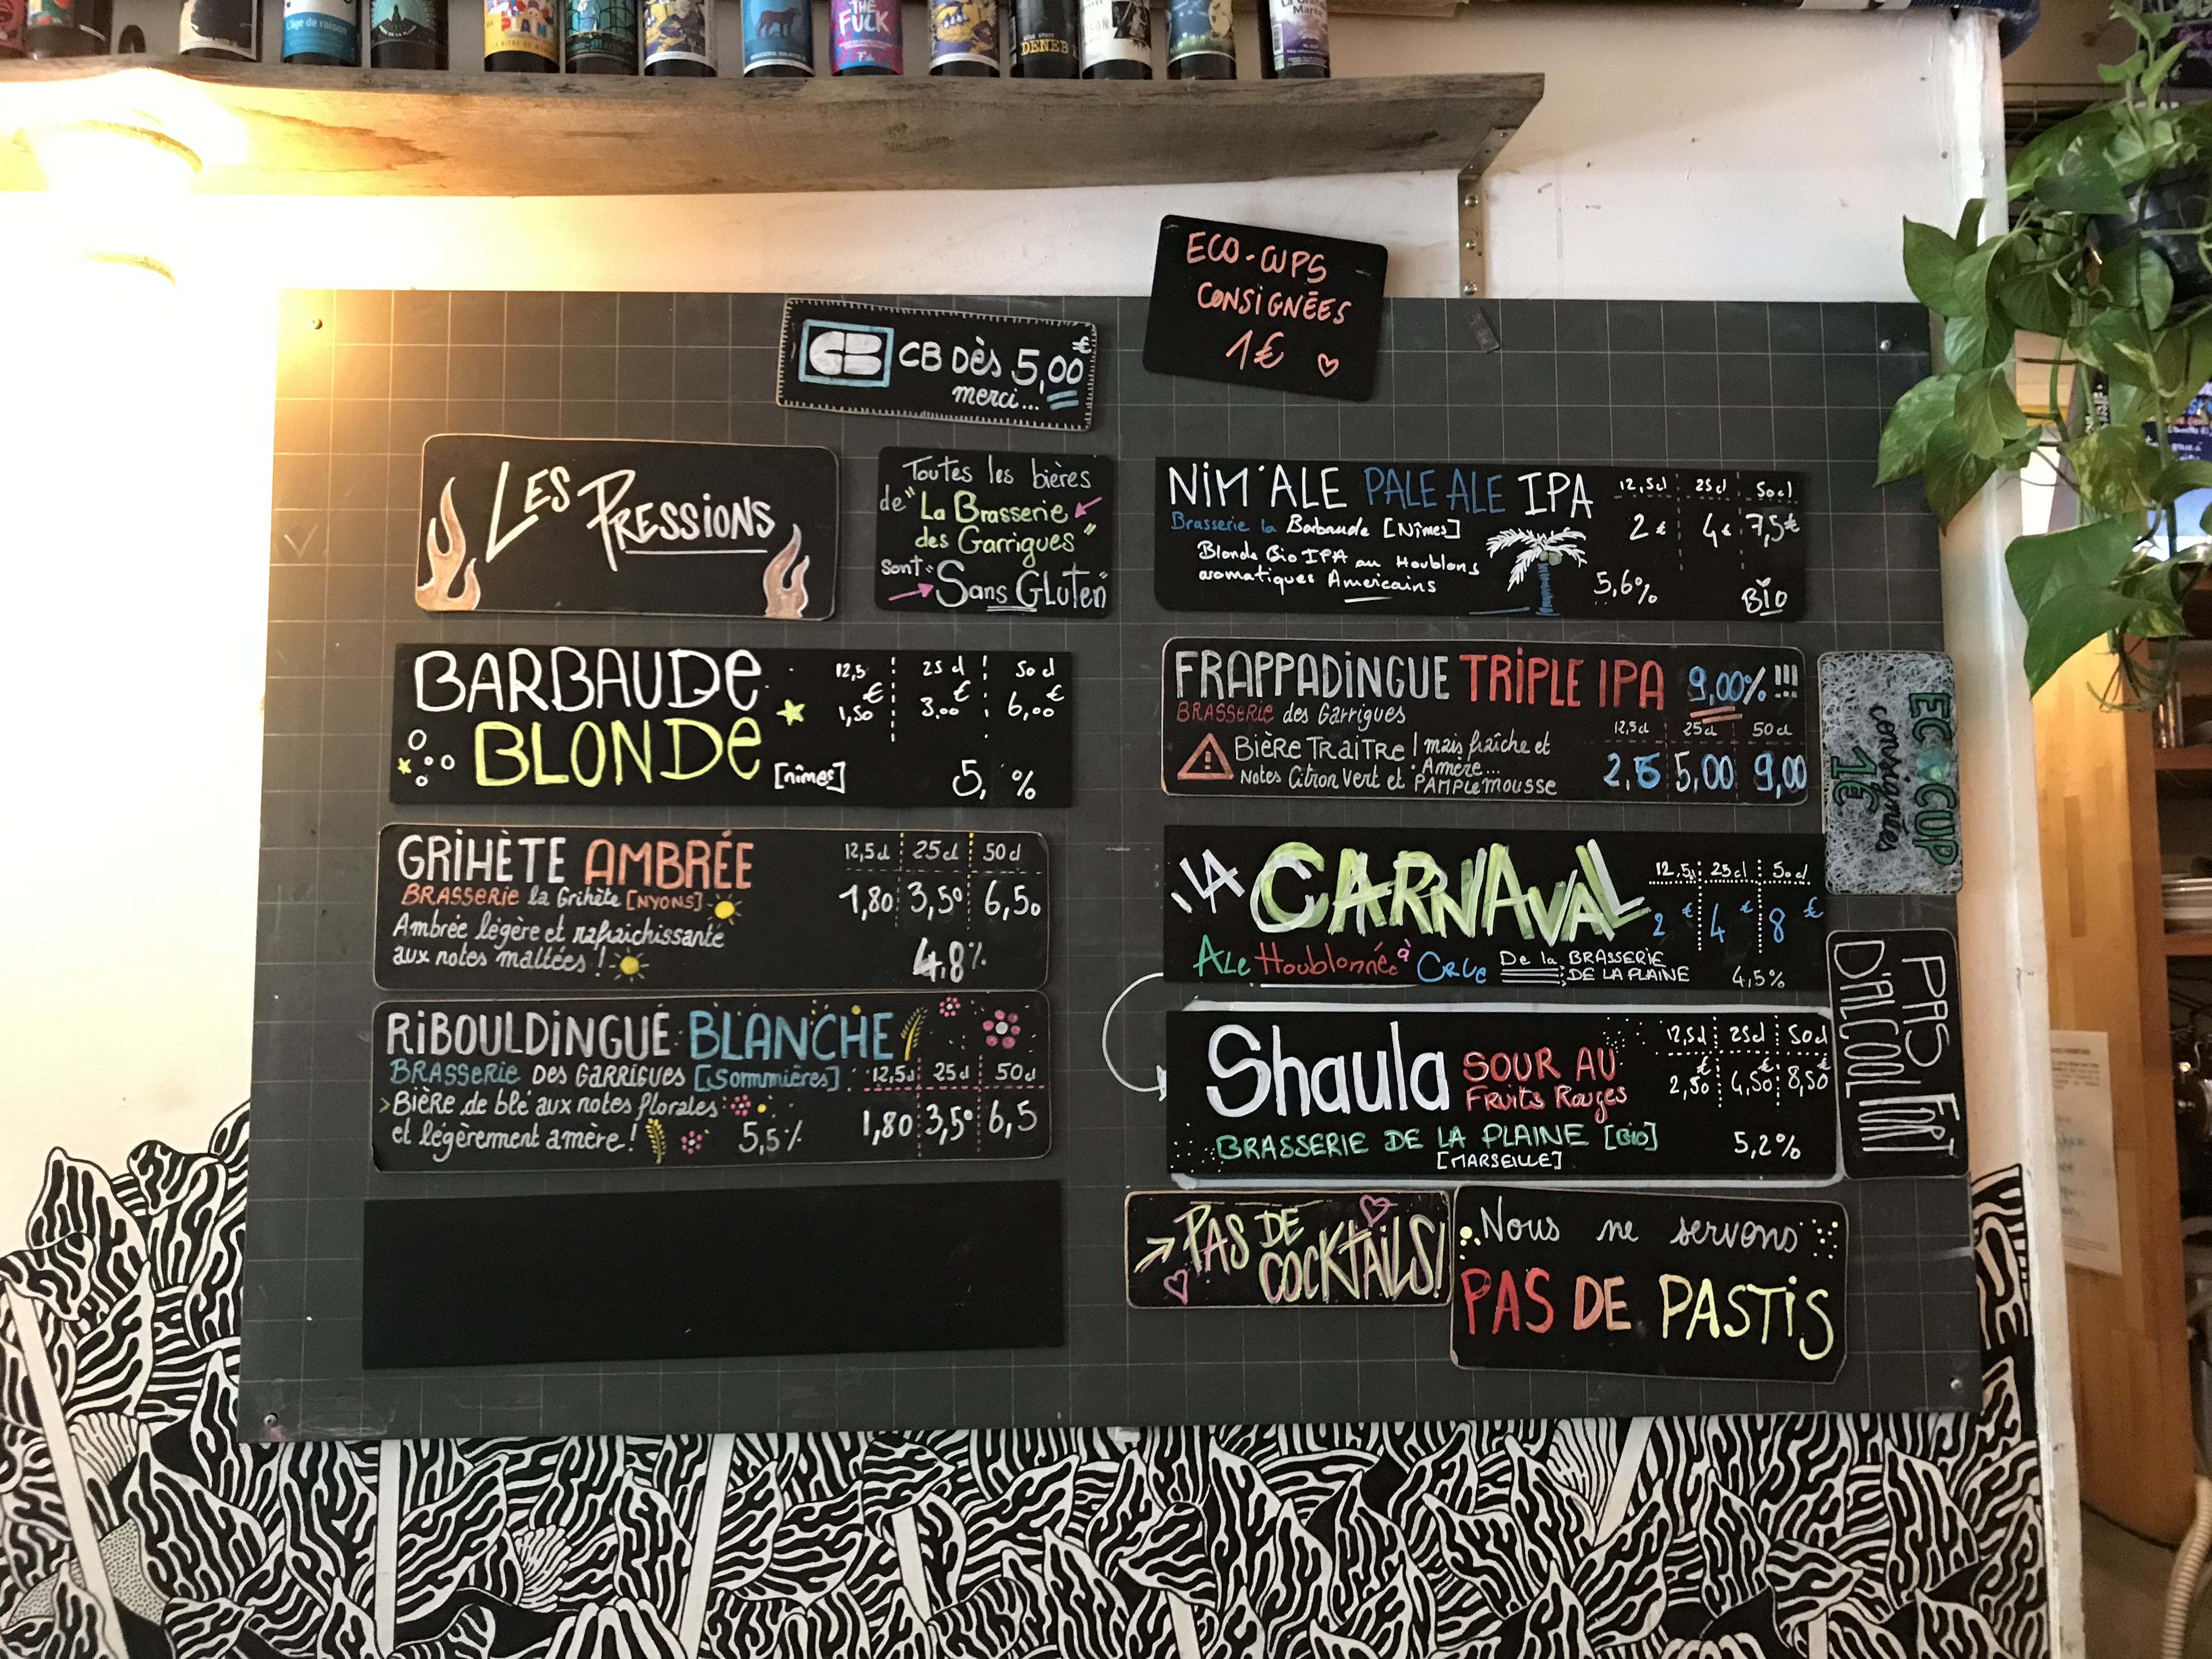 L'âge de raison
THE
FUCK
DENEB
ECO-CUPS
CONSIGNÉES
1€
CB CB Dès 5,00€
merci...
LES PRESSIONS
Toutes les bières
de "La Brasserie
des Garrigues"
sont "Sans Gluten"
BARBAUDE
BLONDE
[nîmes]
12,5 25 cl 50 cl
1,50€ 3,00€ 6,00€
5, %
GRIHÈTE AMBRÉE
BRASSERIE la Grihète [NYONS]
Ambrée légère et rafraichissante
aux notes maltées !
12,5 cl 25 cl 50 cl
1,80 3,50 6,50
4,8%
RIBOULDINGUE BLANCHE
BRASSERIE DES GARRIGUES [Sommières]
Bière de blé aux notes florales
et légèrement amère !
5,5%
12,5cl 25 cl 50 cl
1,80 3,50 6,5
NIM'ALE PALE ALE IPA
Brasserie la Barbaude [Nîmes]
Blonde Bio IPA au Houblons
aromatiques Americains
12,5cl 25cl 50cl
2€ 4€ 7,5€
5,6%
BIO
FRAPPADINGUE TRIPLE IPA 9,00% !!!
BRASSERIE des Garrigues
BIÈRE TRAITRE ! mais fraîche et
Amère...
Notes Citron Vert et PAMPLEMOUSSE
12,5cl 25cl 50cl
5,00 9,00
LA CARNAVAL
ALE Houblonnée à CRUE De la BRASSERIE
DE LA PLAINE
12,5 25cl 50cl
2€ 4€ 8€
4,5%
Shaula SOUR AU
FRUITS ROUGES
BRASSERIE DE LA PLAINE [BIO]
[MARSEILLE]
12,5cl 25cl 50cl
2,50€ 4,50€ 8,50€
5,2%
PAS DE
COCKTAILS!
Nous ne servons
PAS DE PASTIS
ECOCUP
consignées
1€
PAS
D'ALCOOL FORT